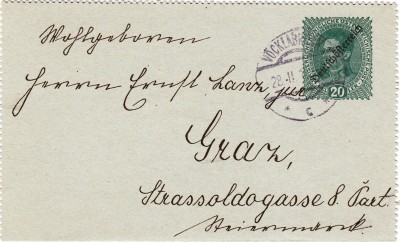 Wohlgeboren
Herrn Ernst Lanz, jur.
Graz,
Strassoldogasse 8. Part.
Steiermark.
VÖCKLAB
28.II
* c *
Deutschösterreich
20